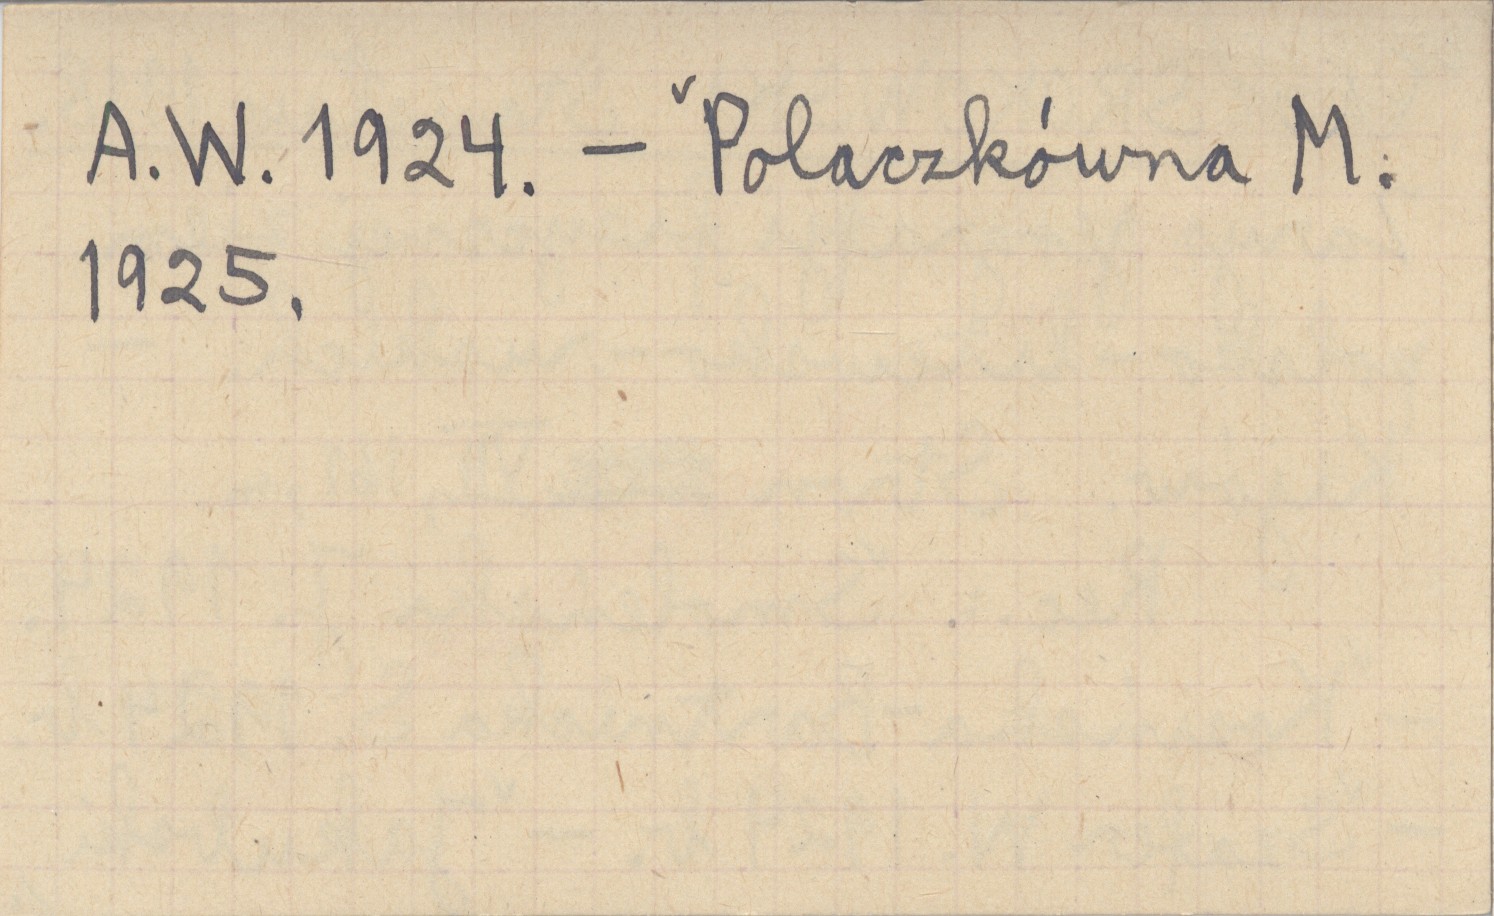 A.W. 1924. – ˇPolaczkówna M.
1925.